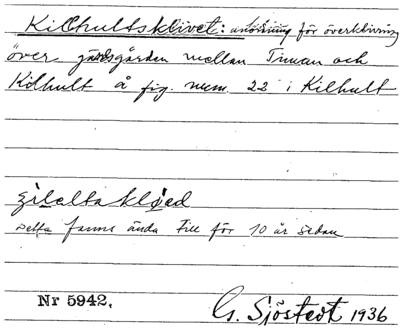 Kilhultsklivet: anordning för överklivning
över gärdsgården mellan Timan och
Kölhult å fig. num. 22 i Kilhult
Detta fanns ända till för 10 år sedan
Nr 5942.
G. Sjöstedt 1936